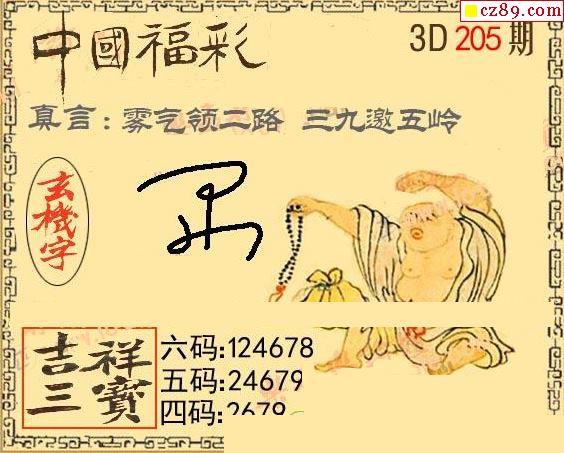 cz89.com
中國福彩
3D 205 期
真言：雾气领二路 三九邀五岭
玄機字
吉祥三寶
六码:124678
五码:24679
四码:2679